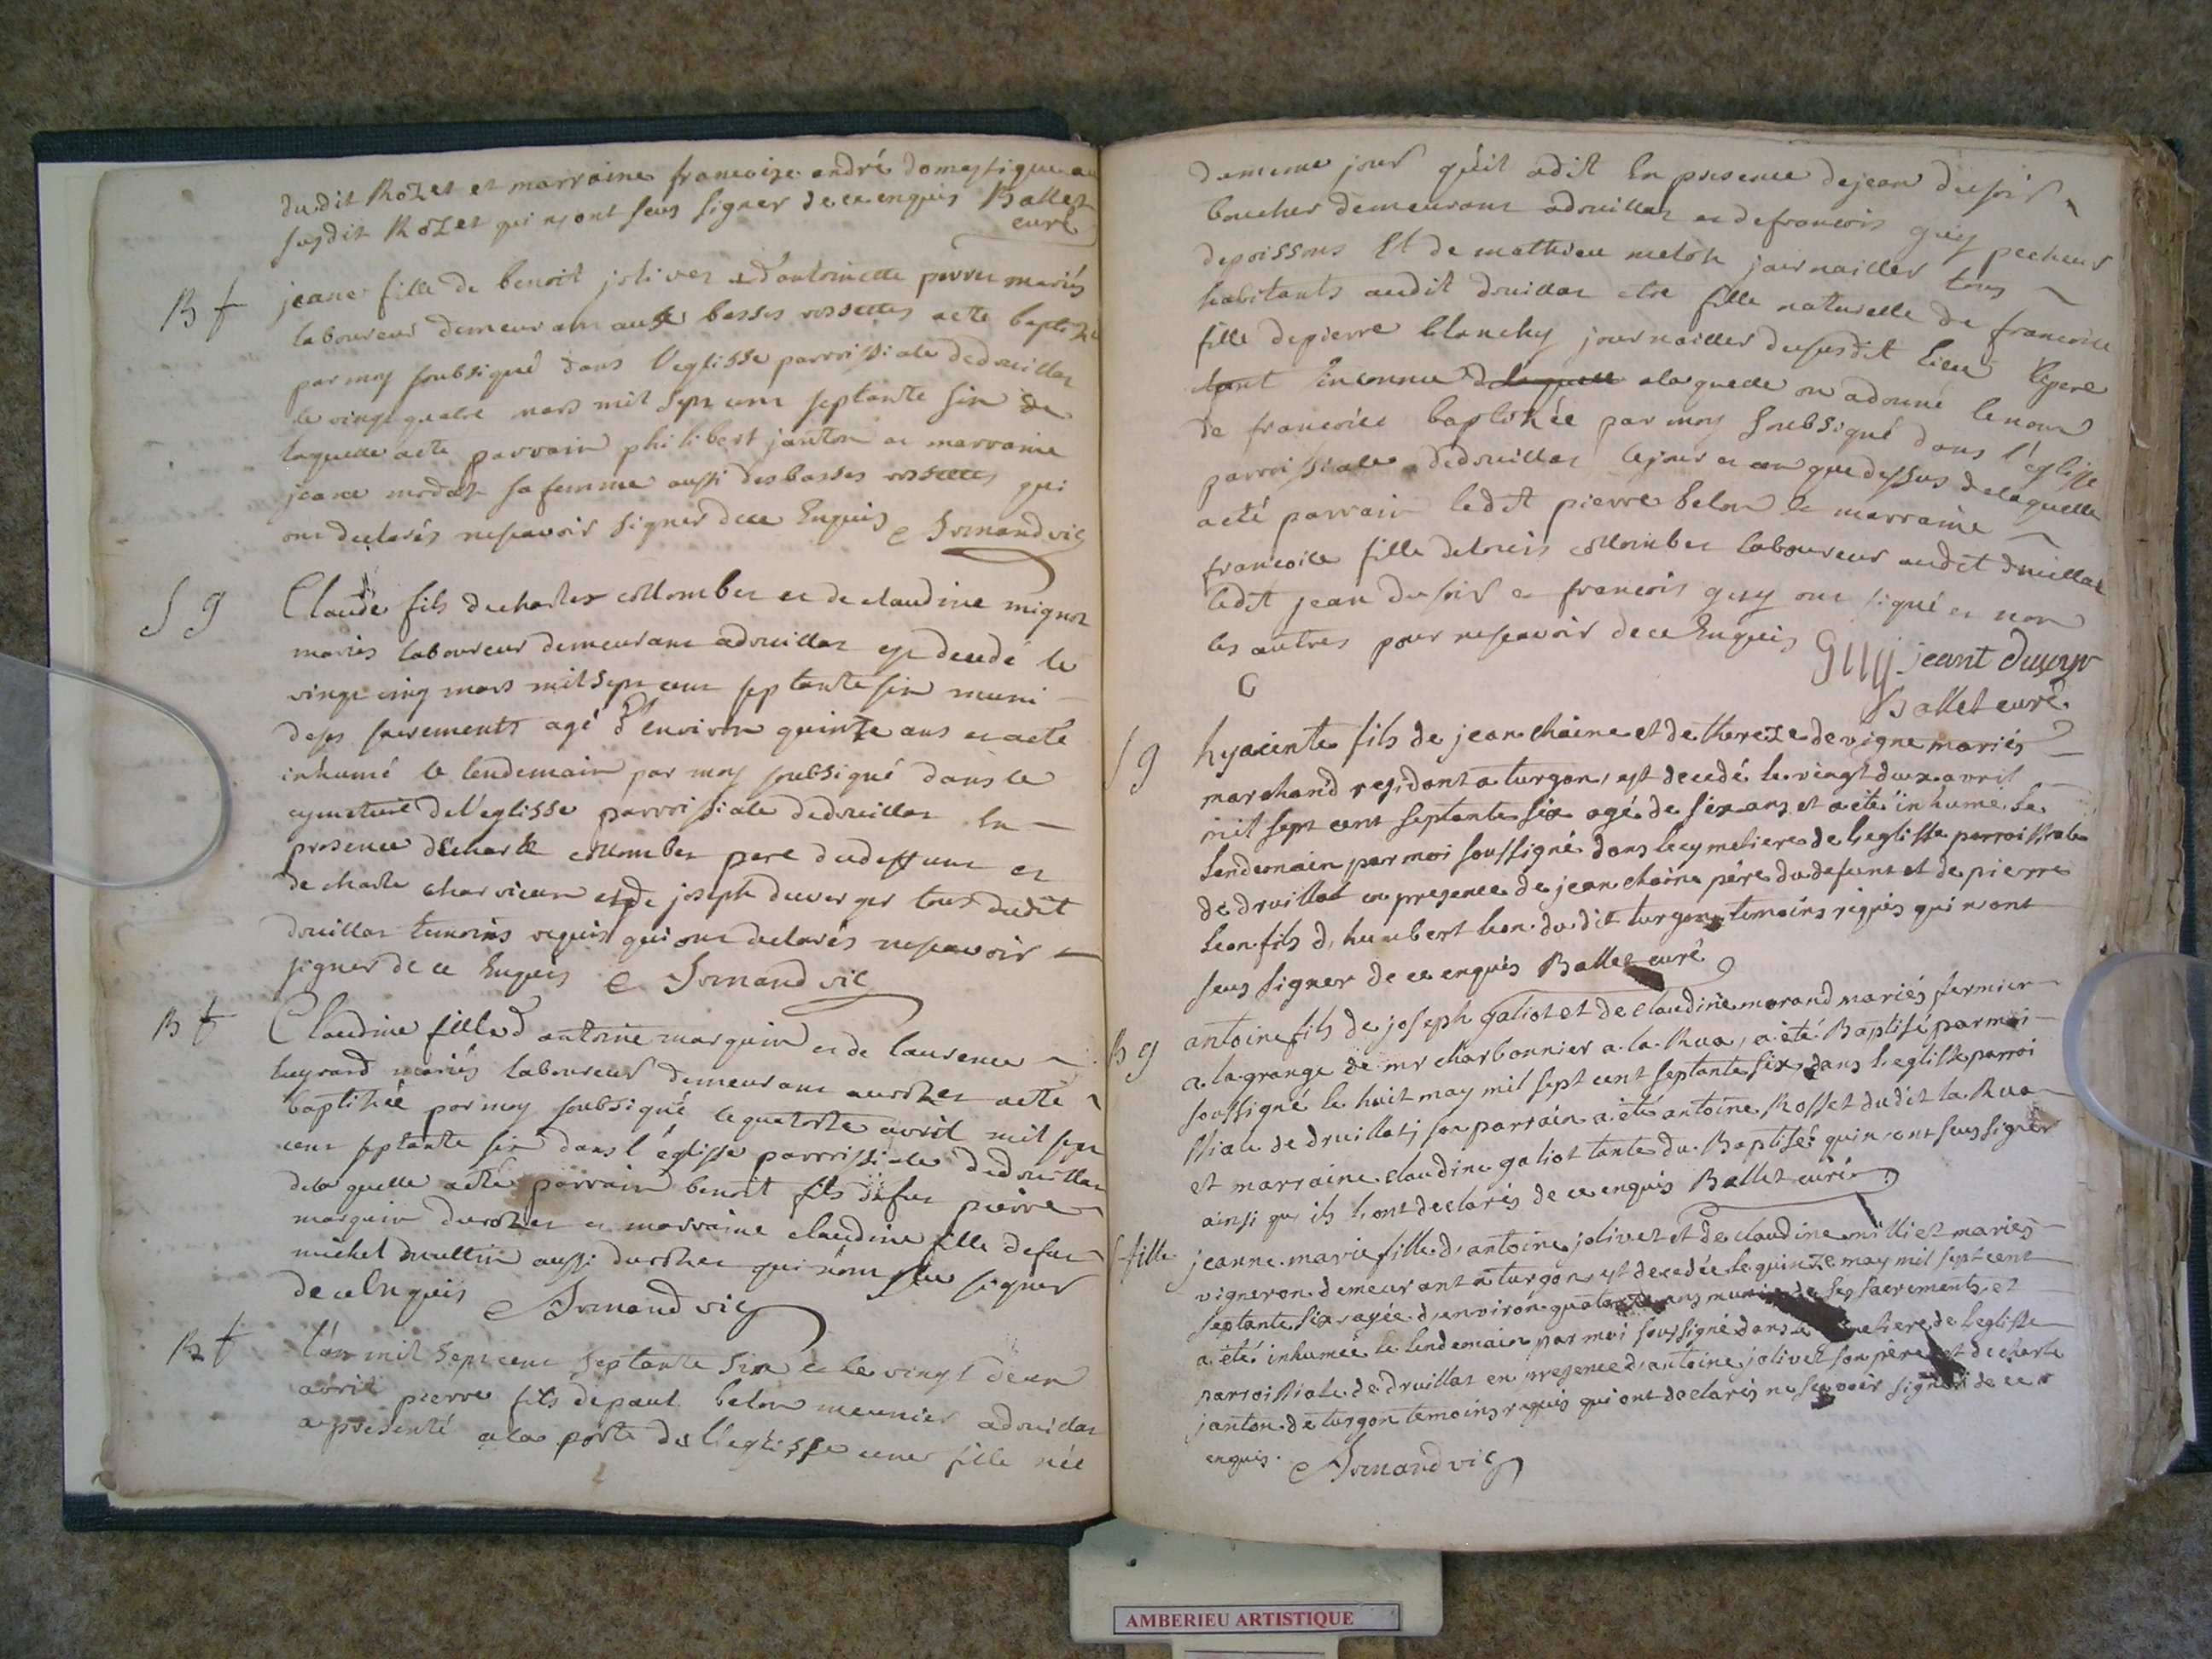 du dit Rozet et marraine francoize andré domestique au
susdit Rozet qui n'ont seus signer de ce enquis Ballet
curé
B f
jeane fille de benoit jolivet et d'antoinette perret mariés
laboureur demeurant aux basses rossettes a eté baptizé
par moy soubsigné dans l'eglisse parroissiale de druillat
le vingt quatre mars mil sept cent septante six de
laquelle a eté parrain philibert janton et marraine
jeane modat sa femme aussi des basses rossettes qui
ont declarés ne scavoir signer de ce Enquis Armand vic
S g
Claude fils de charles collombet et de claudine mignot
mariés laboureur demeurant a druillat est decedé le
vingt cinq mars mil sept cent septante six muni
de ses sacrements agé d'environ quinze ans et a eté
inhumé le lendemain par moy soubsigné dans le
cymetiere de l'eglisse parroissiale de druillat En
presence de charle collombet pere du deffunt et
de charle charvieux et de joseph duverger tous dudit
druillat temoins requis qui ont declarés ne scavoir
signer de ce Enquis Armand vic
B f
Claudine fille d'antoine marguin et de laurence
mariés laboureur demeurant au rozet a eté
baptizée par moy soubsigné le quatorze avril mil sept
cent septante six dans l'églisse parroissiale de druillat
de la quelle a eté parrain benoit fils de fut pierre
marguin du rozet et marraine claudine fille de fut
michel aussi du rozet qui n'ont sceu signer
de ce Enquis Armand vic
B f
l'an mil sept cent septante six et le vingt deux
avril pierre fils de paul belon meunier a druillat
a presenté a la porte de l'eglisse une fille née
du meme jour qu'il a dit En presence de jean dusoir
boucher demeurant a druillat et de francois guy pecheur
de poissons Et de mathieu metoz journailler tous
habitants audit druillat etre fille naturelle de francoise
fille de pierre blanchy journailler du susdit lieu le pere
etant Inconnu de laquelle a laquelle on a donné le nom
de francoise baptizée par moy soubsigné dans l'églisse
parroissiale de druillat le jour et an que dessus de laquelle
a eté parrain ledit pierre belon et marraine
francoise fille de louis collombet laboureur audit druillat
ledit jean dusoir et francois guy ont signé et non
les autres pour ne scavoir de ce Enquis
Guy jeant dusoyr
Ballet curé
S g
hyacinte fils de jean chaine et de thereze devigne mariés
marchand residant a turgon, est decedé le vingt deux avril
mil sept cent septante six agé de six ans et a eté inhumé le
lendemain par moi soussigné dans le cymetiere de l'eglisse parroissiale
de druillat en presence de jean chaine père du defunt et de pierre
leon fils d'humbert leon du dit turgon temoins requis qui n'ont
seus signer de ce enquis Ballet curé
B g
antoine fils de joseph galiot et de claudine morand mariés fermier
a la grange de mr charbonnier a la Rua, a été Baptisé par moi
soussigné le huit may mil sept cent septante six dans l'eglisse parroi
ssiale de druillat; son parrain a été antoine Rosset du dit la Rua
et marraine claudine galiot tante du Baptisé qui n'ont seus signer
ainsi qu'ils l'ont declarés de ce enquis Ballet curé
S fille
jeanne marie fille d'antoine jolivet et de claudine milliet mariés
vigneron demeurant a turgon est decedée le quinze may mil sept cent
septante six agée d'environ quatorze ans munie de ses sacrements et
a été inhumée le lendemain par moi soussigné dans le cymetiere de l'eglisse
parroissiale de druillat en presence d'antoine jolivet son père et de charle
janton de turgon temoins requis qui ont declarés ne scavoir signer de ce
enquis. Armand vic
AMBERIEU ARTISTIQUE